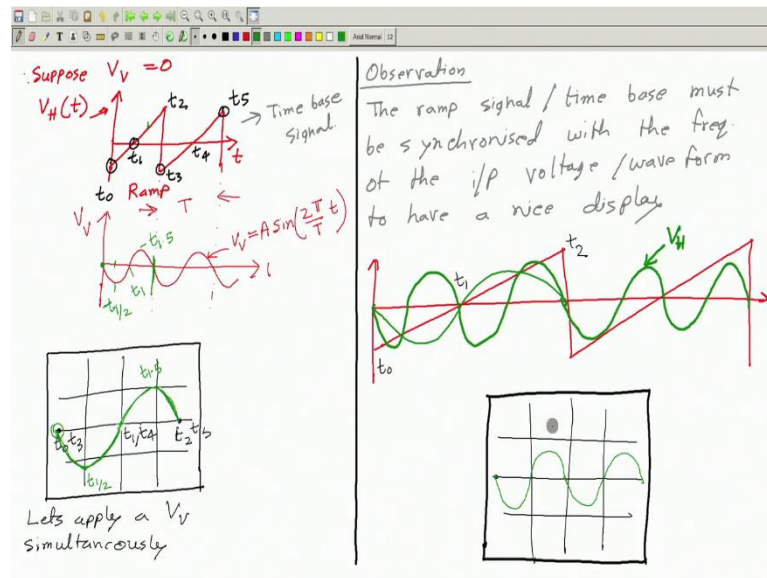 Arial Normal 12
Suppose V_V = 0
V_H(t)
t2
t5
Time base
signal
t1
t4
t
t3
t0
Ramp
T
V_V
V_V = A sin(2π/T t)
t1.5
t1
t1/2
t1.5
t0 t3
t1, t4
t2 t5
t1/2
Lets apply a V_V
simultancously
Observation
The ramp signal / time base must
be synchronised with the freq.
of the i/p voltage / wave form
to have a nice display
t2
V_H
t1
t0